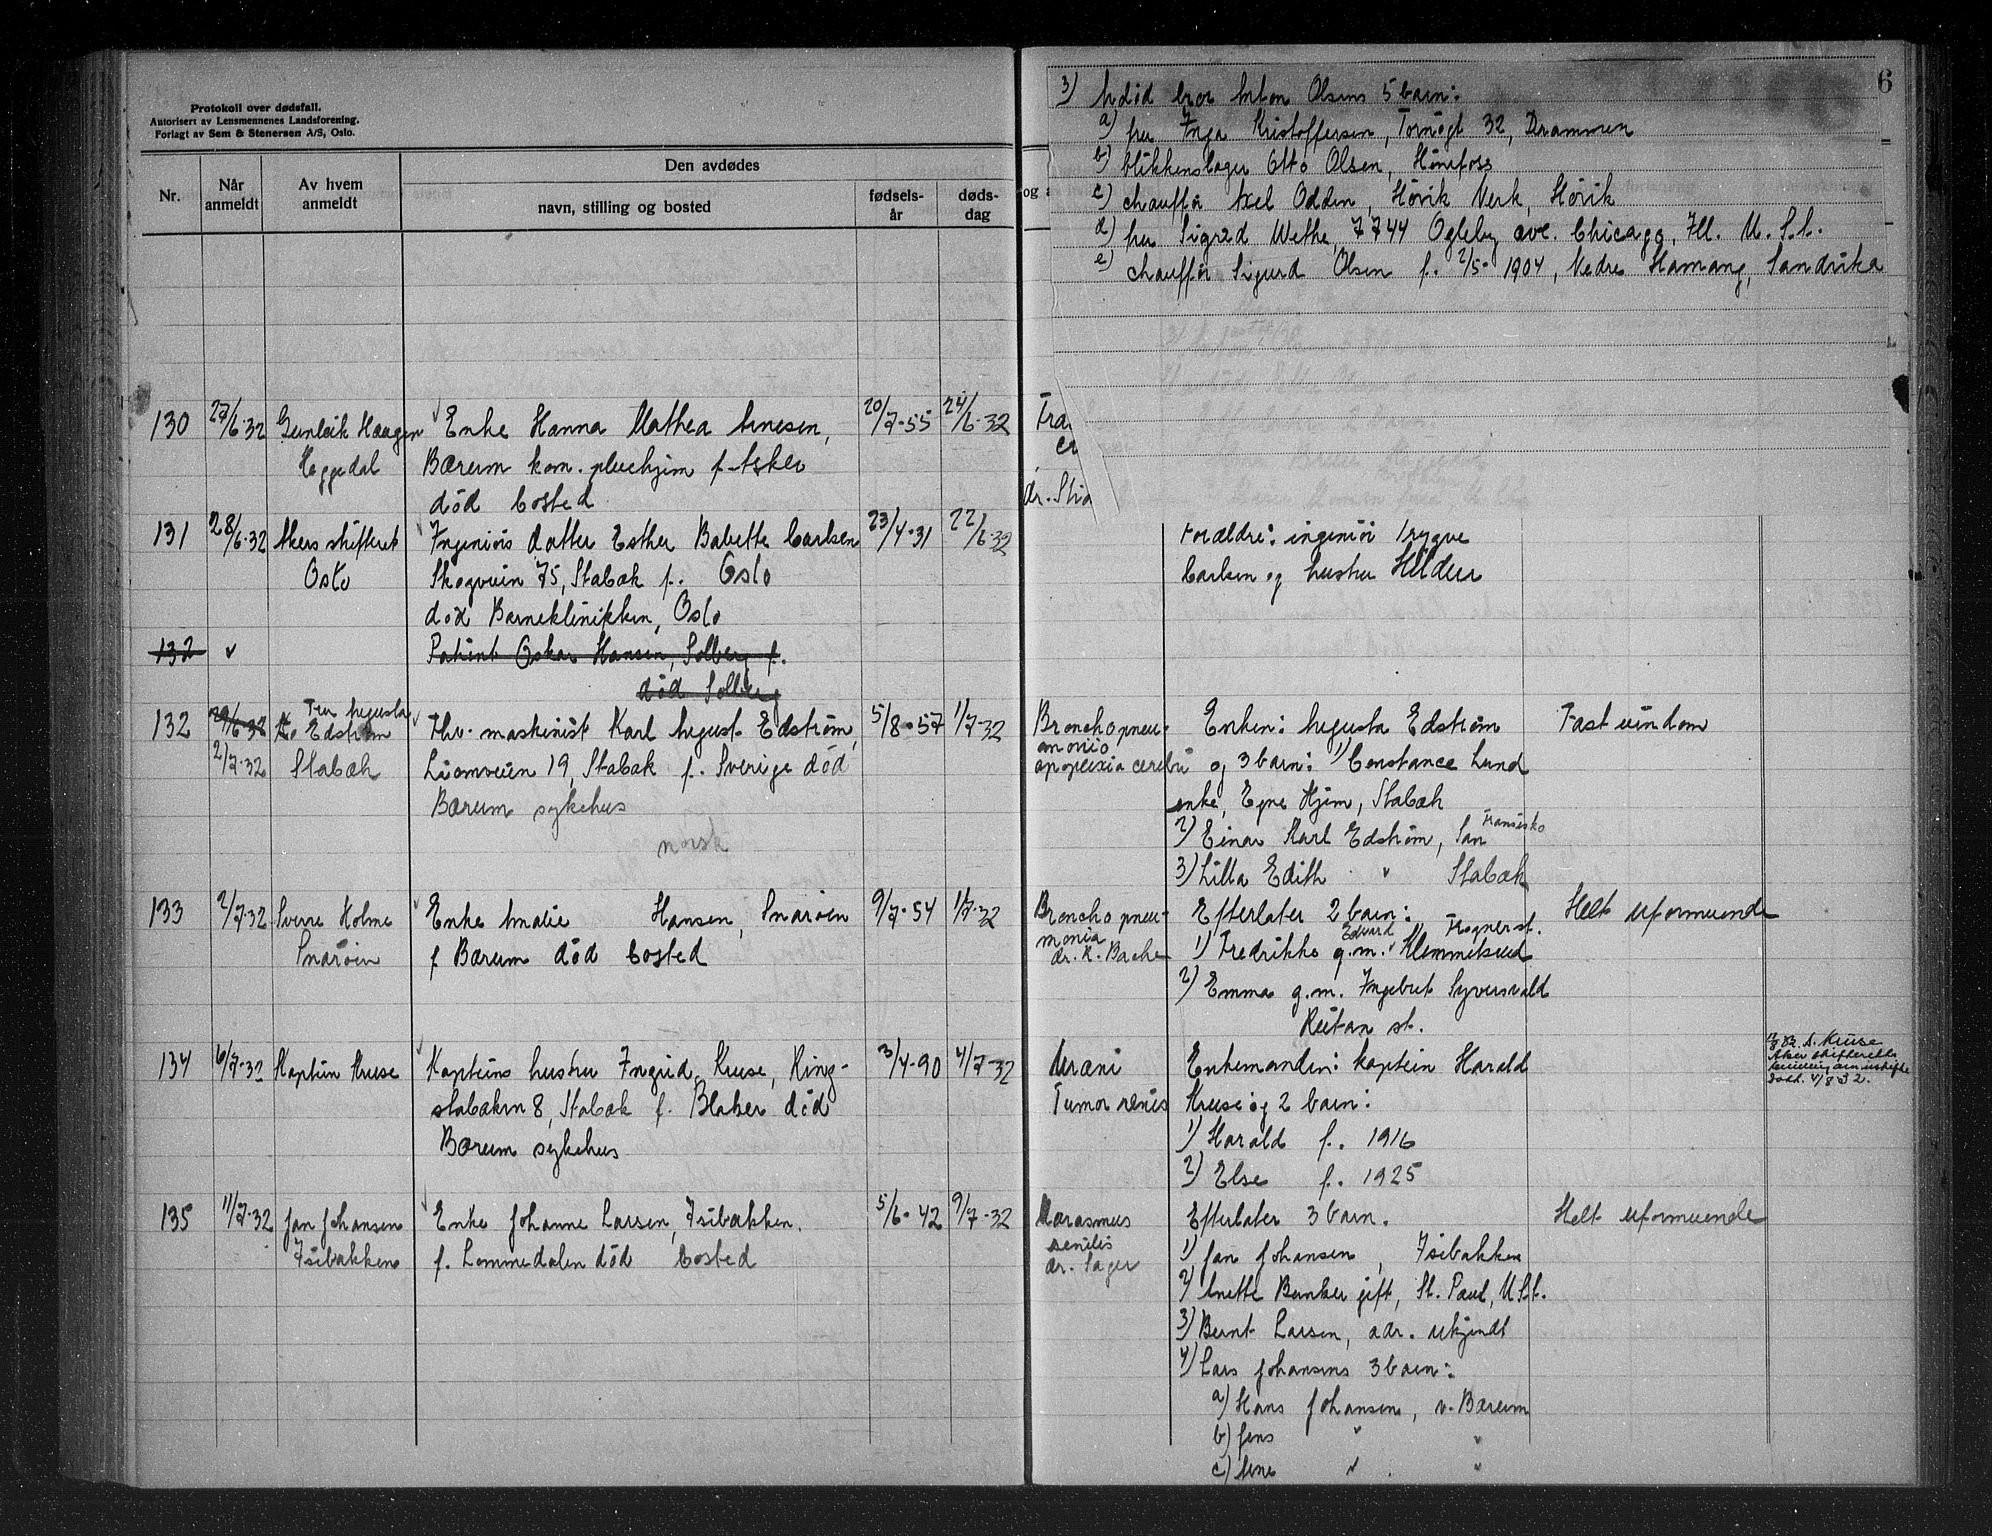 Protokoll over dødsfall.
Autorisert av Lensmennenes Landsforening.
Forlagt av Sem & Stenersen A/S, Oslo.
Nr.
Når anmeldt
Av hvem anmeldt
Den avdødes
navn, stilling og bosted
fødsels-år
døds-dag
130 27/6-32 Gunleik Haagen Enke Hanna Mathea Arnesen, 20/7-55 24/6-32
Heggedal Bærum kom. pleiehjem f. Asker
død bosted
131 28/6-32 Akers skifterett Ingeniørs datter Esther Babette Carlsen 23/4-31 22/6-32
Oslo Skogveien 75, Stabæk f. Oslo
død Barneklinikken, Oslo
132 v Patient Oskar Hansen, Solberg f.
død Solberg
132 29/6-32 Fru Augusta
Edstrøm Fhv. maskinist Karl August Edstrøm, 5/8-57 1/7-32
2/7-32 Stabæk 19, Stabæk f. Sverige død
Bærum sykehus
norsk
133 2/7-32 Sverre Holme Enke Amalie Hansen, Snarøen 9/7-54 1/7-32
Snarøen f Bærum død bosted
134 6/7-32 Kaptein Kruse Kapteins hustru Ingrid Kruse, Ring- 3/4-90 4/7-32
stabækken 8, Stabæk f. Blaker død
Bærum sykehus
135 11/7-32 Jan Johansen Enke Johanne Larsen, Isibakken. 5/6-42 9/7-32
Isibakken f. Lommedalen død bosted
6
3) Avdød bror Anton Olsens 5 barn:
a) fru Inga Kristoffersen, 32, Drammen
b) blikkenslager Otto Olsen, Hønefoss
c) chauffør Axel Odden, Hørik Verk, Hørik
d) fru Sigrid Wethe, 7744 Ogleby ave. Chicago, Ill. U.S.A.
e) chauffør Sigurd Olsen f. 2/5-1904, Nedre Hamang, Sandvika
og a
Fra
cr
dr. Stia
Forældre: ingeniør Trygve
Carlsen og hustru Hildur
Bronchopneu- Enken: Augusta Edstrøm Fast eiendom
monia
apoplexia cerebri og 3 barn: 1) Constance Lund
enke, Egne Hjem, Stabæk
2) Einar Karl Edstrøm, San Fransisko
3) Lilla Edith " Stabæk
Bronchopneu- Efterlater 2 barn: Helt uformuende
monia
dr. K. Bache 1) Fredrikke g.m. Edvard Klemmetsrud Fognerst.
2) Emma g.m. Ingebret Syversvold
Rutan st.
Uræmi Enkemanden: kaptein Harald
Tumor renis Kruse og 2 barn:
1) Harald f. 1916
2) Else f. 1925
Marasmus Efterlater 3 barn. Helt uformuende
senilis
dr. Sager 1) Jan Johansen, Isibakken
2) Anette Bunker gift, St. Paul, U.S.A.
3) Bernt Larsen, adr. ukjendt
4) Lars Johansens 3 barn:
a) Hans Johansen, v. Bærum
b) Jens " "
c) Arne " "